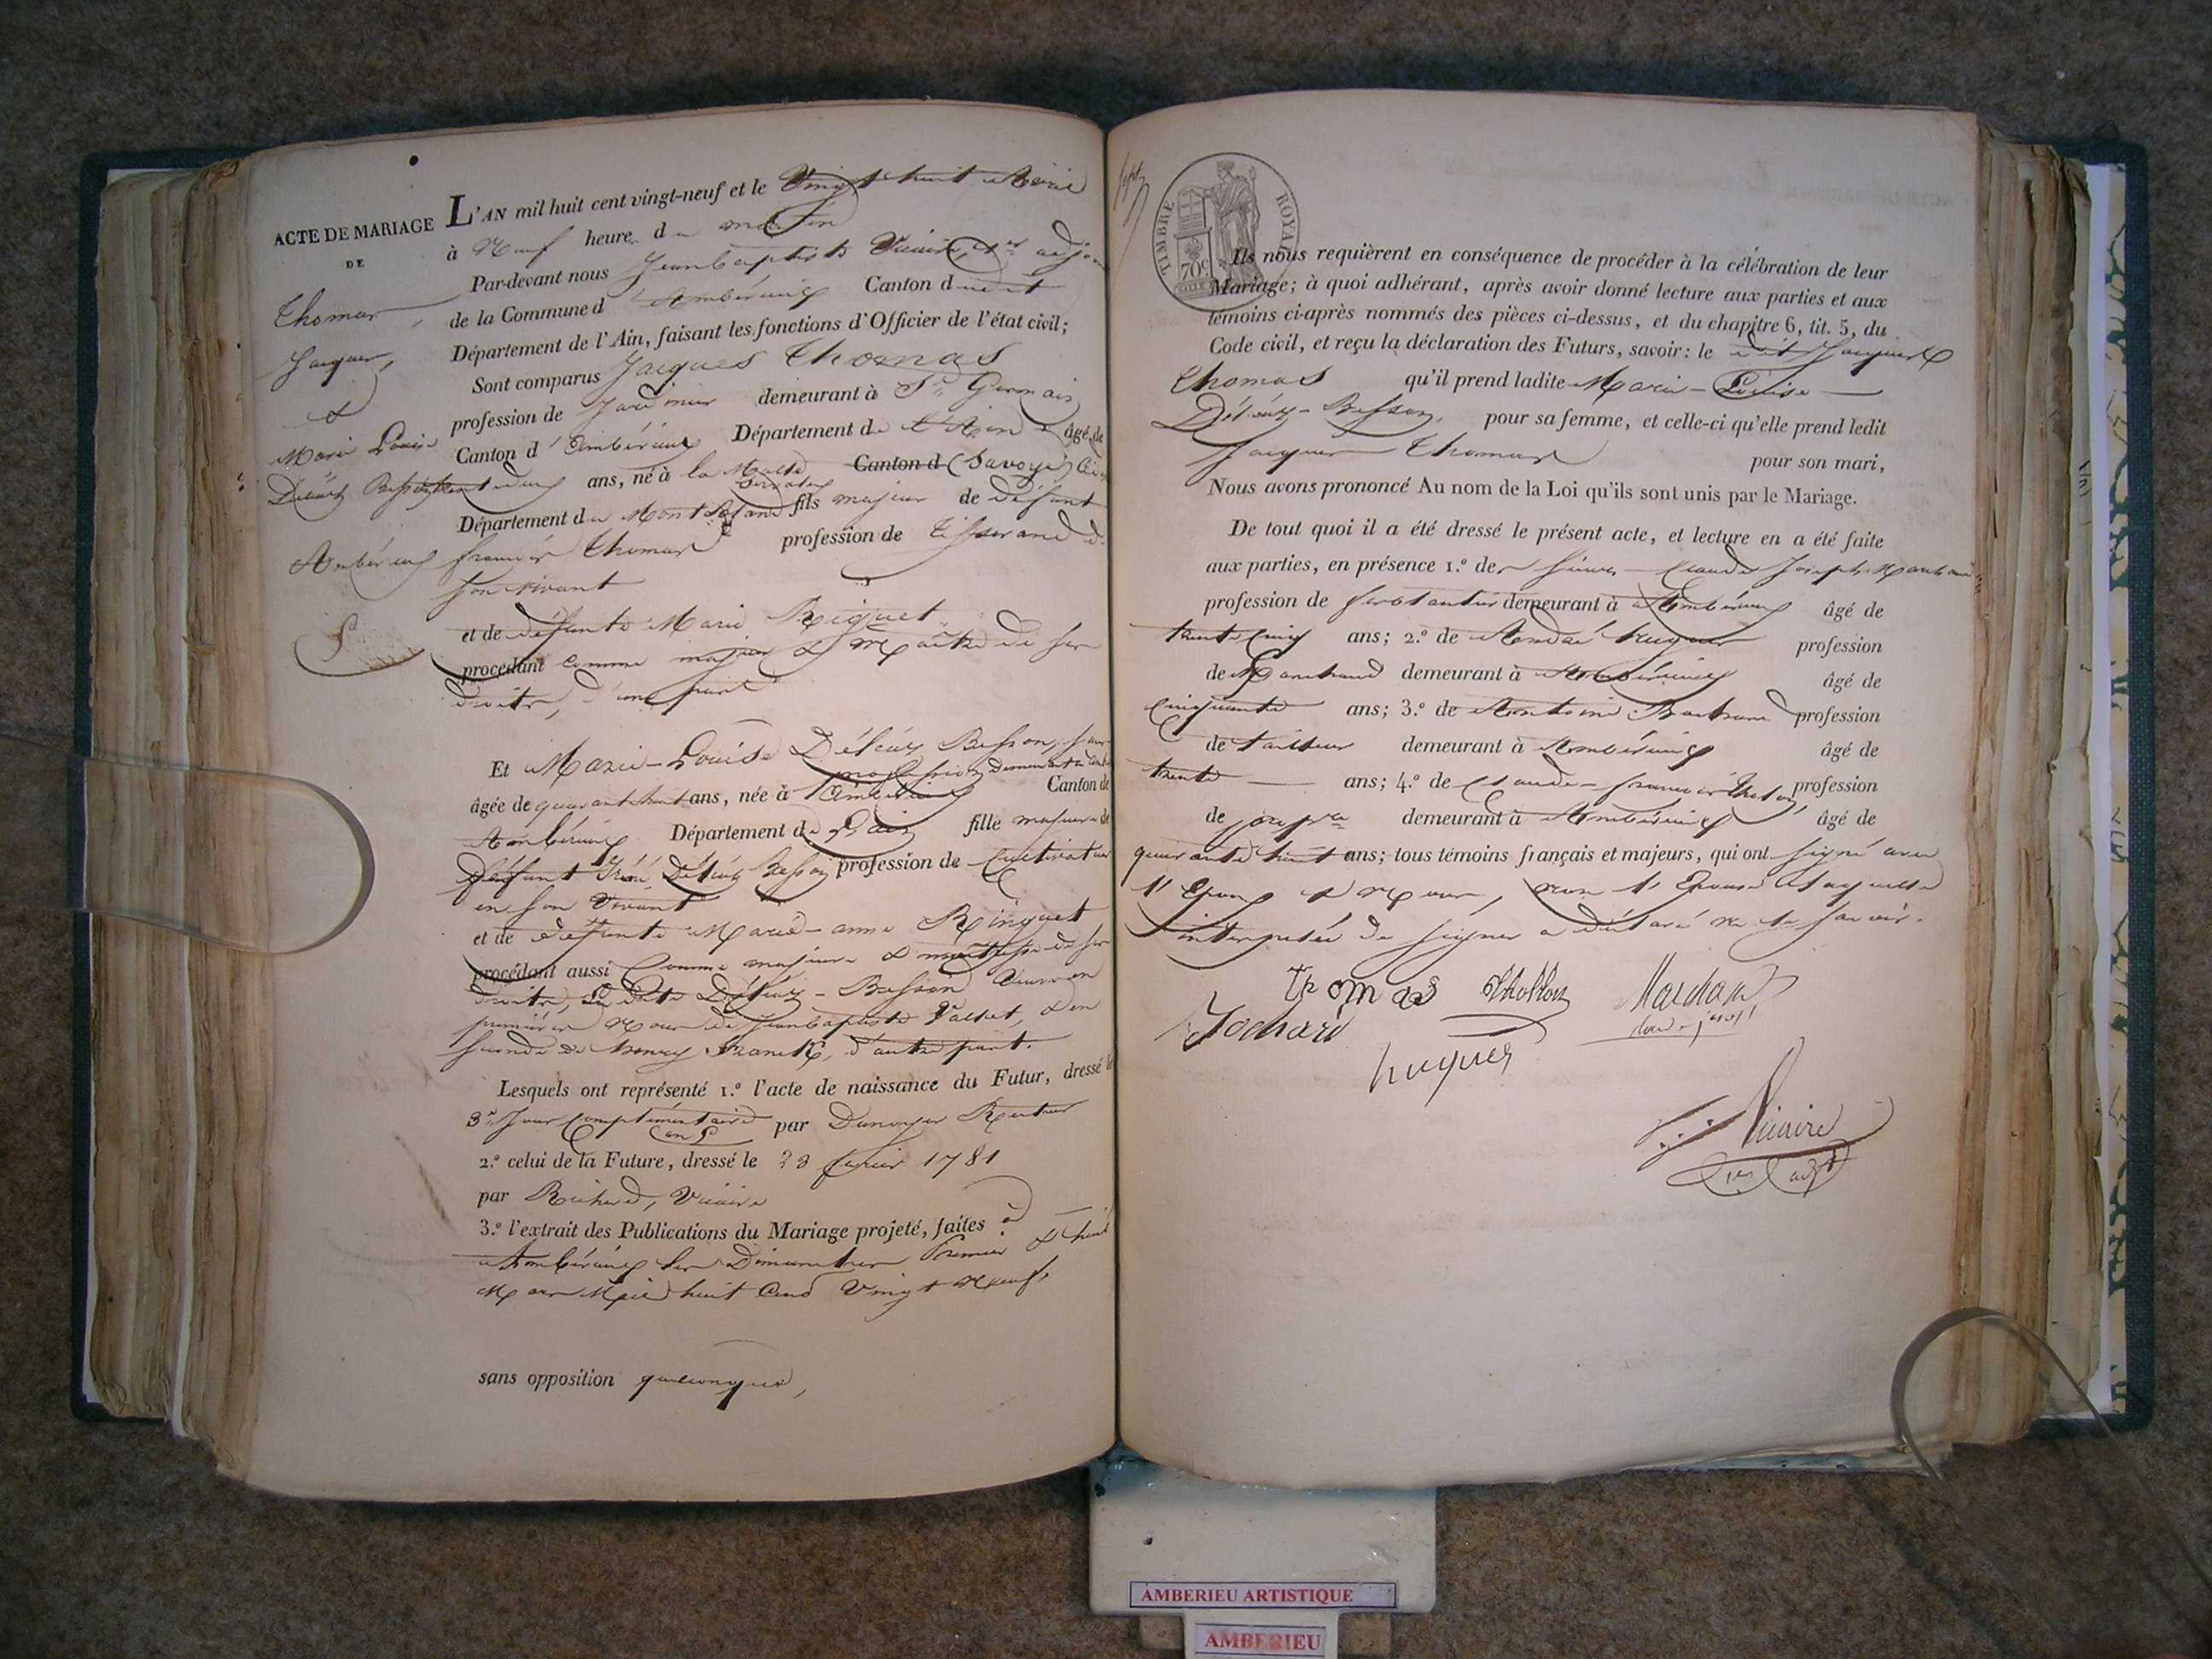 ACTE DE MARIAGE
DE
Thomas
Jacques,
&
Marie Louise
Déléaz Besson
Ambérieux
L'AN mil huit cent vingt-neuf et le Vingt huit Avril
à Neuf heure du matin
Par-devant nous Jeanbaptiste Vicaire, 1er adjoint
de la Commune d'Ambérieux Canton dudit
Département de l'Ain, faisant les fonctions d'Officier de l'état civil;
Sont comparus Jacques Thomas
profession de Jardinier demeurant à St. Germain
Canton d'Ambérieux Département de l'Ain âgé de
ans, né à la Canton d (Savoye)
Département du Mont Blanc fils majeur de défunt
françois Thomas profession de tisserand de
son vivant
et de défunte Marie Riguet
procédant comme majeur & Maître de ses
droits, d'une part
Et Marie-Louise Déléaz Besson, sans
profession demeurant à
âgée de quarante huit ans, née à Ambérieux Canton de
Ambérieux Département de l'ain fille majeure de
défunt Déléaz Besson profession de Cultivateur
en son Vivant
et de défunte Marie-anne Ringuet
procédant aussi Comme majeure & maîtresse de ses
droits, Ladite Déléaz-Besson Veuve en
premières Noces de Jeanbaptiste Vallet, & en
seconde de d'autre part.
Lesquels ont représenté 1.° l'acte de naissance du Futur, dressé le
3e Jour Complémentaire par Dunoyer Recteur
an 5
2.° celui de la Future, dressé le 23 1781
par Richerd, Vicaire
3.° l'extrait des Publications du Mariage projeté, faites à
Ambérieux les Dimanches Premier & huit
Mars Mil huit Cent Vingt Neuf,
sans opposition quelconque,
TIMBRE ROYAL
70c
Ils nous requièrent en conséquence de procéder à la célébration de leur
Mariage; à quoi adhérant, après avoir donné lecture aux parties et aux
témoins ci-après nommés des pièces ci-dessus, et du chapitre 6, tit. 5, du
Code civil, et reçu la déclaration des Futurs, savoir: le dit Jacques
Thomas qu'il prend ladite Marie-Louise
Déléaz-Besson, pour sa femme, et celle-ci qu'elle prend ledit
Jacques Thomas pour son mari,
Nous avons prononcé Au nom de la Loi qu'ils sont unis par le Mariage.
De tout quoi il a été dressé le présent acte, et lecture en a été faite
aux parties, en présence 1.° des sieurs Claude Joseph
profession de ferblantier demeurant à Ambérieux âgé de
trente cinq ans; 2.° de André hugues profession
de Marchand demeurant à Ambérieux âgé de
Cinquante ans; 3.° de Antoine profession
de tailleur demeurant à Ambérieux âgé de
trente ans; 4.° de Claude-françois Thollon profession
de demeurant à Ambérieux âgé de
quarante huit ans; tous témoins français et majeurs, qui ont signé avec
l'Epoux & Nous, non l'Epouse laquelle
interpellée de signer a déclaré ne le savoir.
Thomas Thollon
hugues
Vicaire
1er adjt
AMBERIEU ARTISTIQUE
AMBERIEU